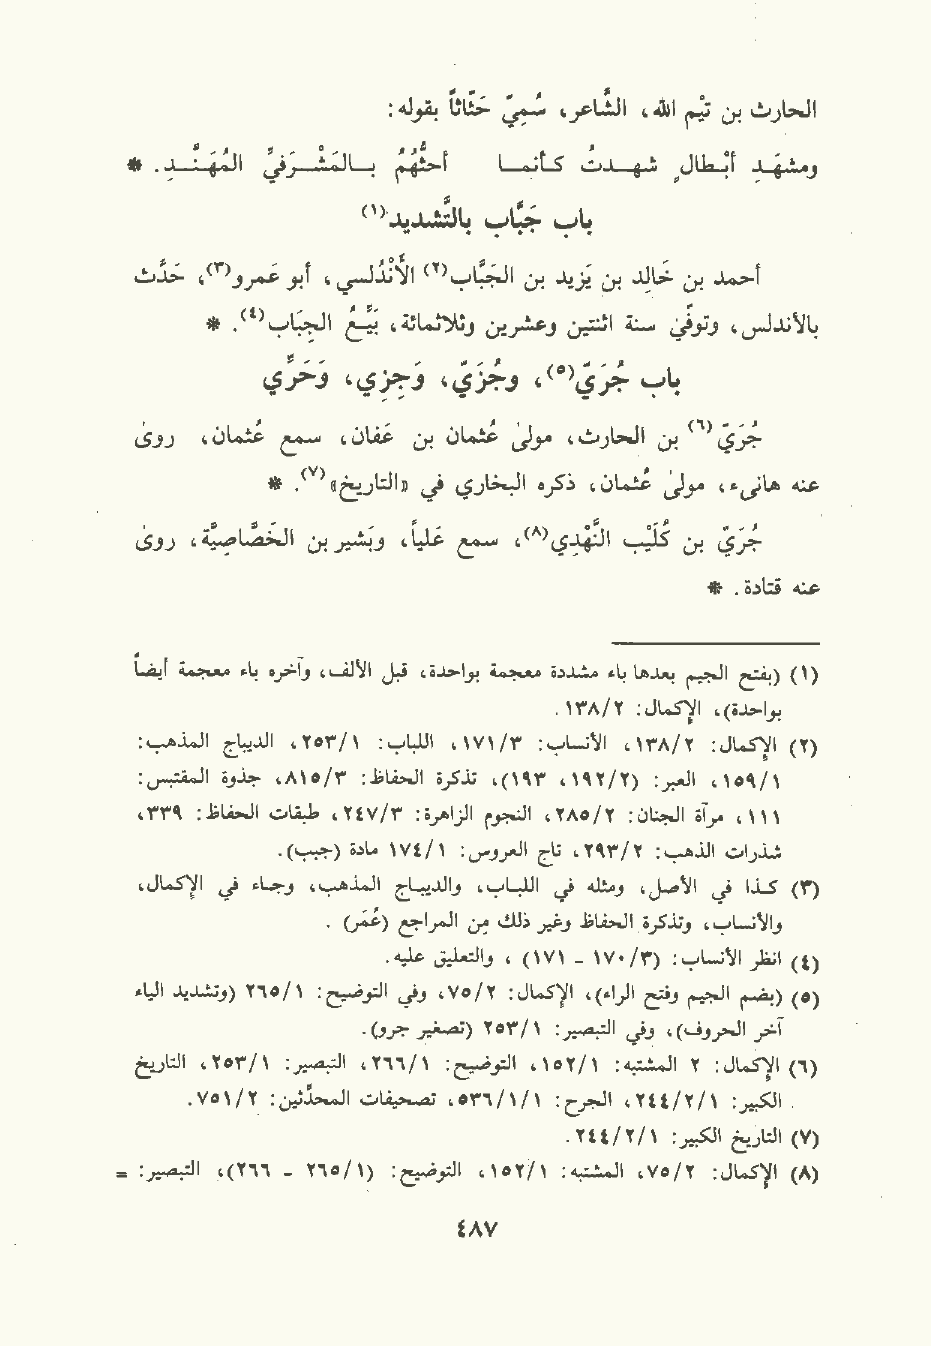 الحارث بن تَيْم الله، الشَّاعر، سُمِيّ حَثَّاثاً بقوله:
ومشهَد أبْطال شهدتُ كأنما أحثُّهُمُ بالمَشْرَفيِّ المُهَنَّد. *
باب جَبَّاب بالتَّشديد(١)
أحمد بن خَالِد بن يَزيد بن الجَبَّاب(٢) الأَنْدُلسي، أبو عَمرو(٣)، حَدَّث
بالأندلس، وتوفِّيَ سنة اثنتين وعشرين وثلاثمائة، بَيِّعُ الجِبَاب(٤). *
باب جُرَيّ(٥)، وجُزَيّ، وَجِزِي، وَحَرِّي
جُرَيّ(٦) بن الحارث، مولىٰ عُثمان بن عَفان، سمع عُثمان، روىٰ
عنه هانىء، مولىٰ عُثمان، ذكره البخاري في «التاريخ»(٧). *
جُرَيّ بن كُلَيْب النَّهْدِي(٨)، سمع عَلياً، وبَشير بن الخَصَّاصِيَّة، روىٰ
عنه قتادة. *
(١) (بفتح الجيم بعدها باء مشددة معجمة بواحدة، قبل الألف، وآخره باء معجمة أيضاً
بواحدة)، الإكمال: ١٣٨/٢.
(٢) الإكمال: ١٣٨/٢، الأنساب: ١٧١/٣، اللباب: ٢٥٣/١، الديباج المذهب:
١٥٩/١، العبر: (١٩٢/٢، ١٩٣)، تذكرة الحفاظ: ٨١٥/٣، جذوة المقتبس:
١١١، مرآة الجنان: ٢٨٥/٢، النجوم الزاهرة: ٢٤٧/٣، طبقات الحفاظ: ٣٣٩،
شذرات الذهب: ٢٩٣/٢، تاج العروس: ١٧٤/١ مادة (جبب).
(٣) كذا في الأصل، ومثله في اللباب، والديباج المذهب، وجاء في الإكمال،
والأنساب، وتذكرة الحفاظ وغير ذلك مِن المراجع (عُمَر) .
(٤) انظر الأنساب: (١٧٠/٣ - ١٧١) ، والتعليق عليه.
(٥) (بضم الجيم وفتح الراء)، الإكمال: ٧٥/٢، وفي التوضيح: ٢٦٥/١ (وتشديد الياء
آخر الحروف)، وفي التبصير: ٢٥٣/١ (تصغير جرو).
(٦) الإكمال: ٢ المشتبه: ١٥٢/١، التوضيح: ٢٦٦/١، التبصير: ٢٥٣/١، التاريخ
الكبير: ٢٤٤/٢/١، الجرح: ٥٣٦/١/١، تصحيفات المحدِّثين: ٧٥١/٢.
(٧) التاريخ الكبير: ٢٤٤/٢/١.
(٨) الإكمال: ٧٥/٢، المشتبه: ١٥٢/١، التوضيح: (٢٦٥/١ - ٢٦٦)، التبصير: =
٤٨٧